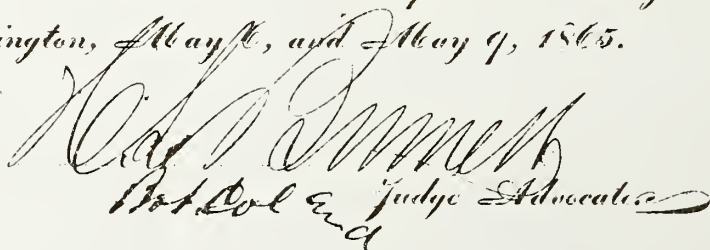 ington, May 6, and May 9, 1865.
H L Burnett
Bvt. Col and Judge Advocate